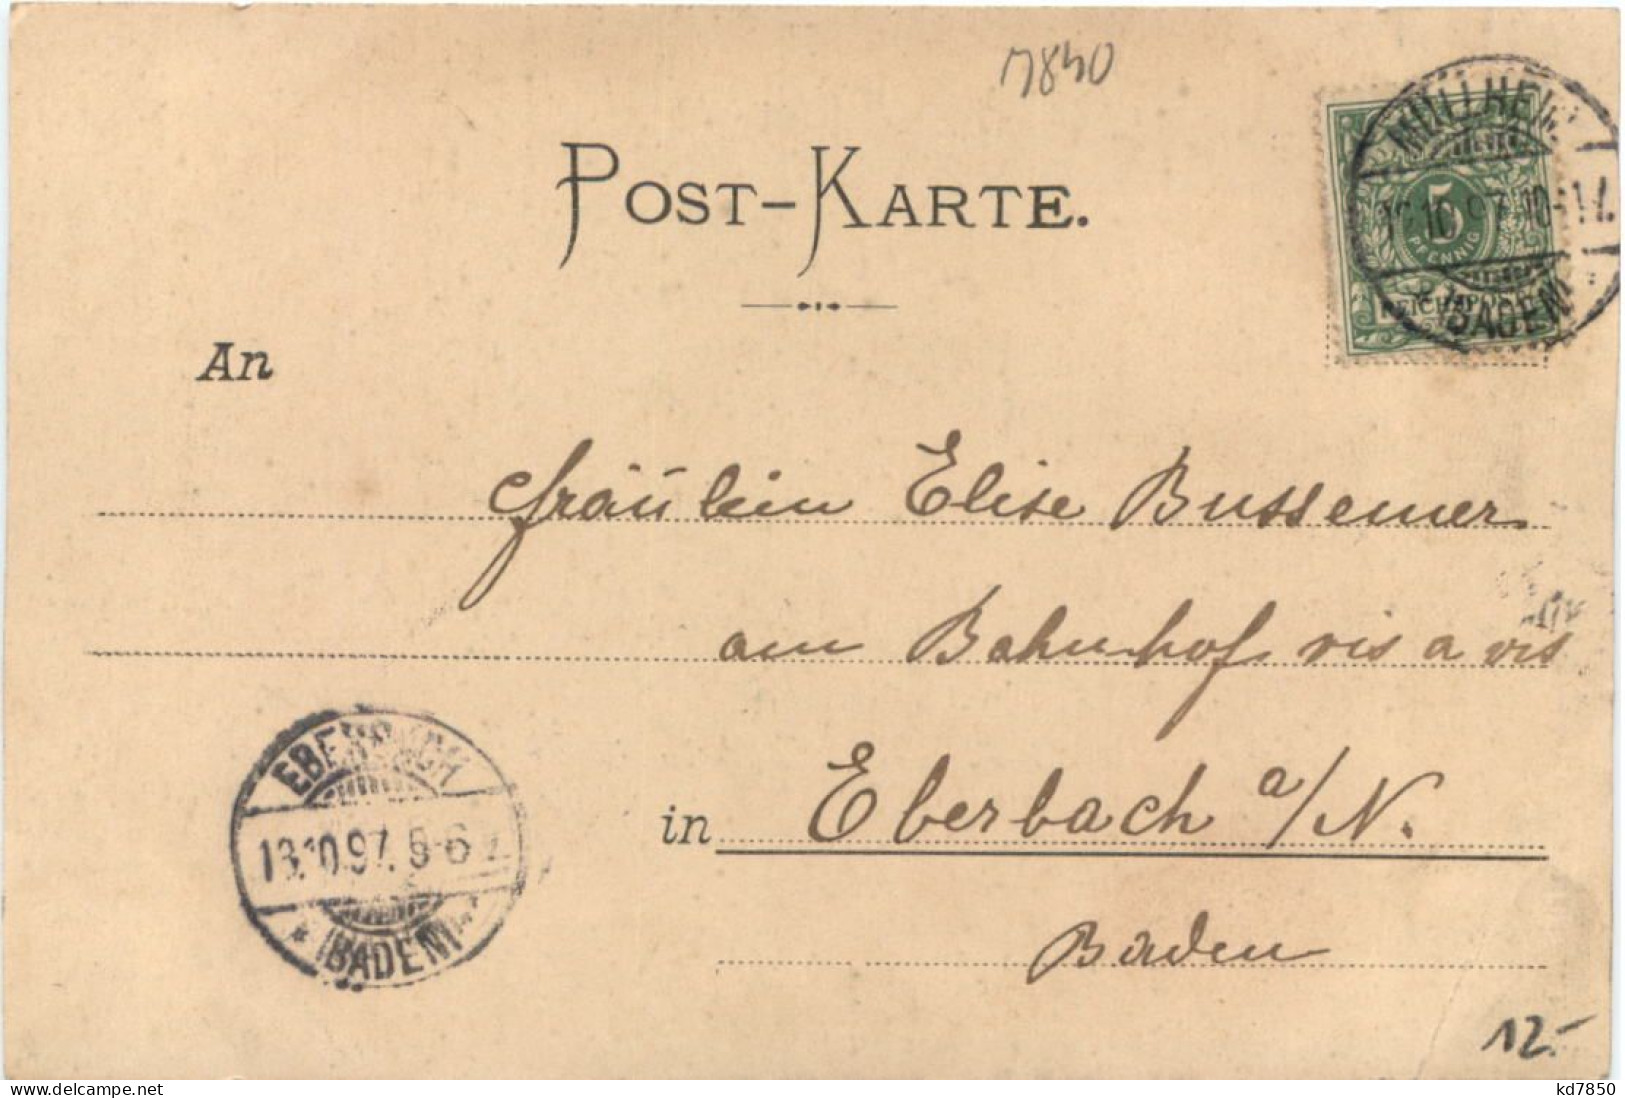 7840
POST-KARTE.
MÜLLHEIM
10.97. 10-11
(BADEN)
5
PFENNIG
REICHSPOST
An
Fräulein Elise Bussemer
am Bahnhof vis a vis
EBERBACH
13.10.97. 5-6
(BADEN)
in Eberbach a/N.
Baden
12.-
www.delcampe.net
kd7850